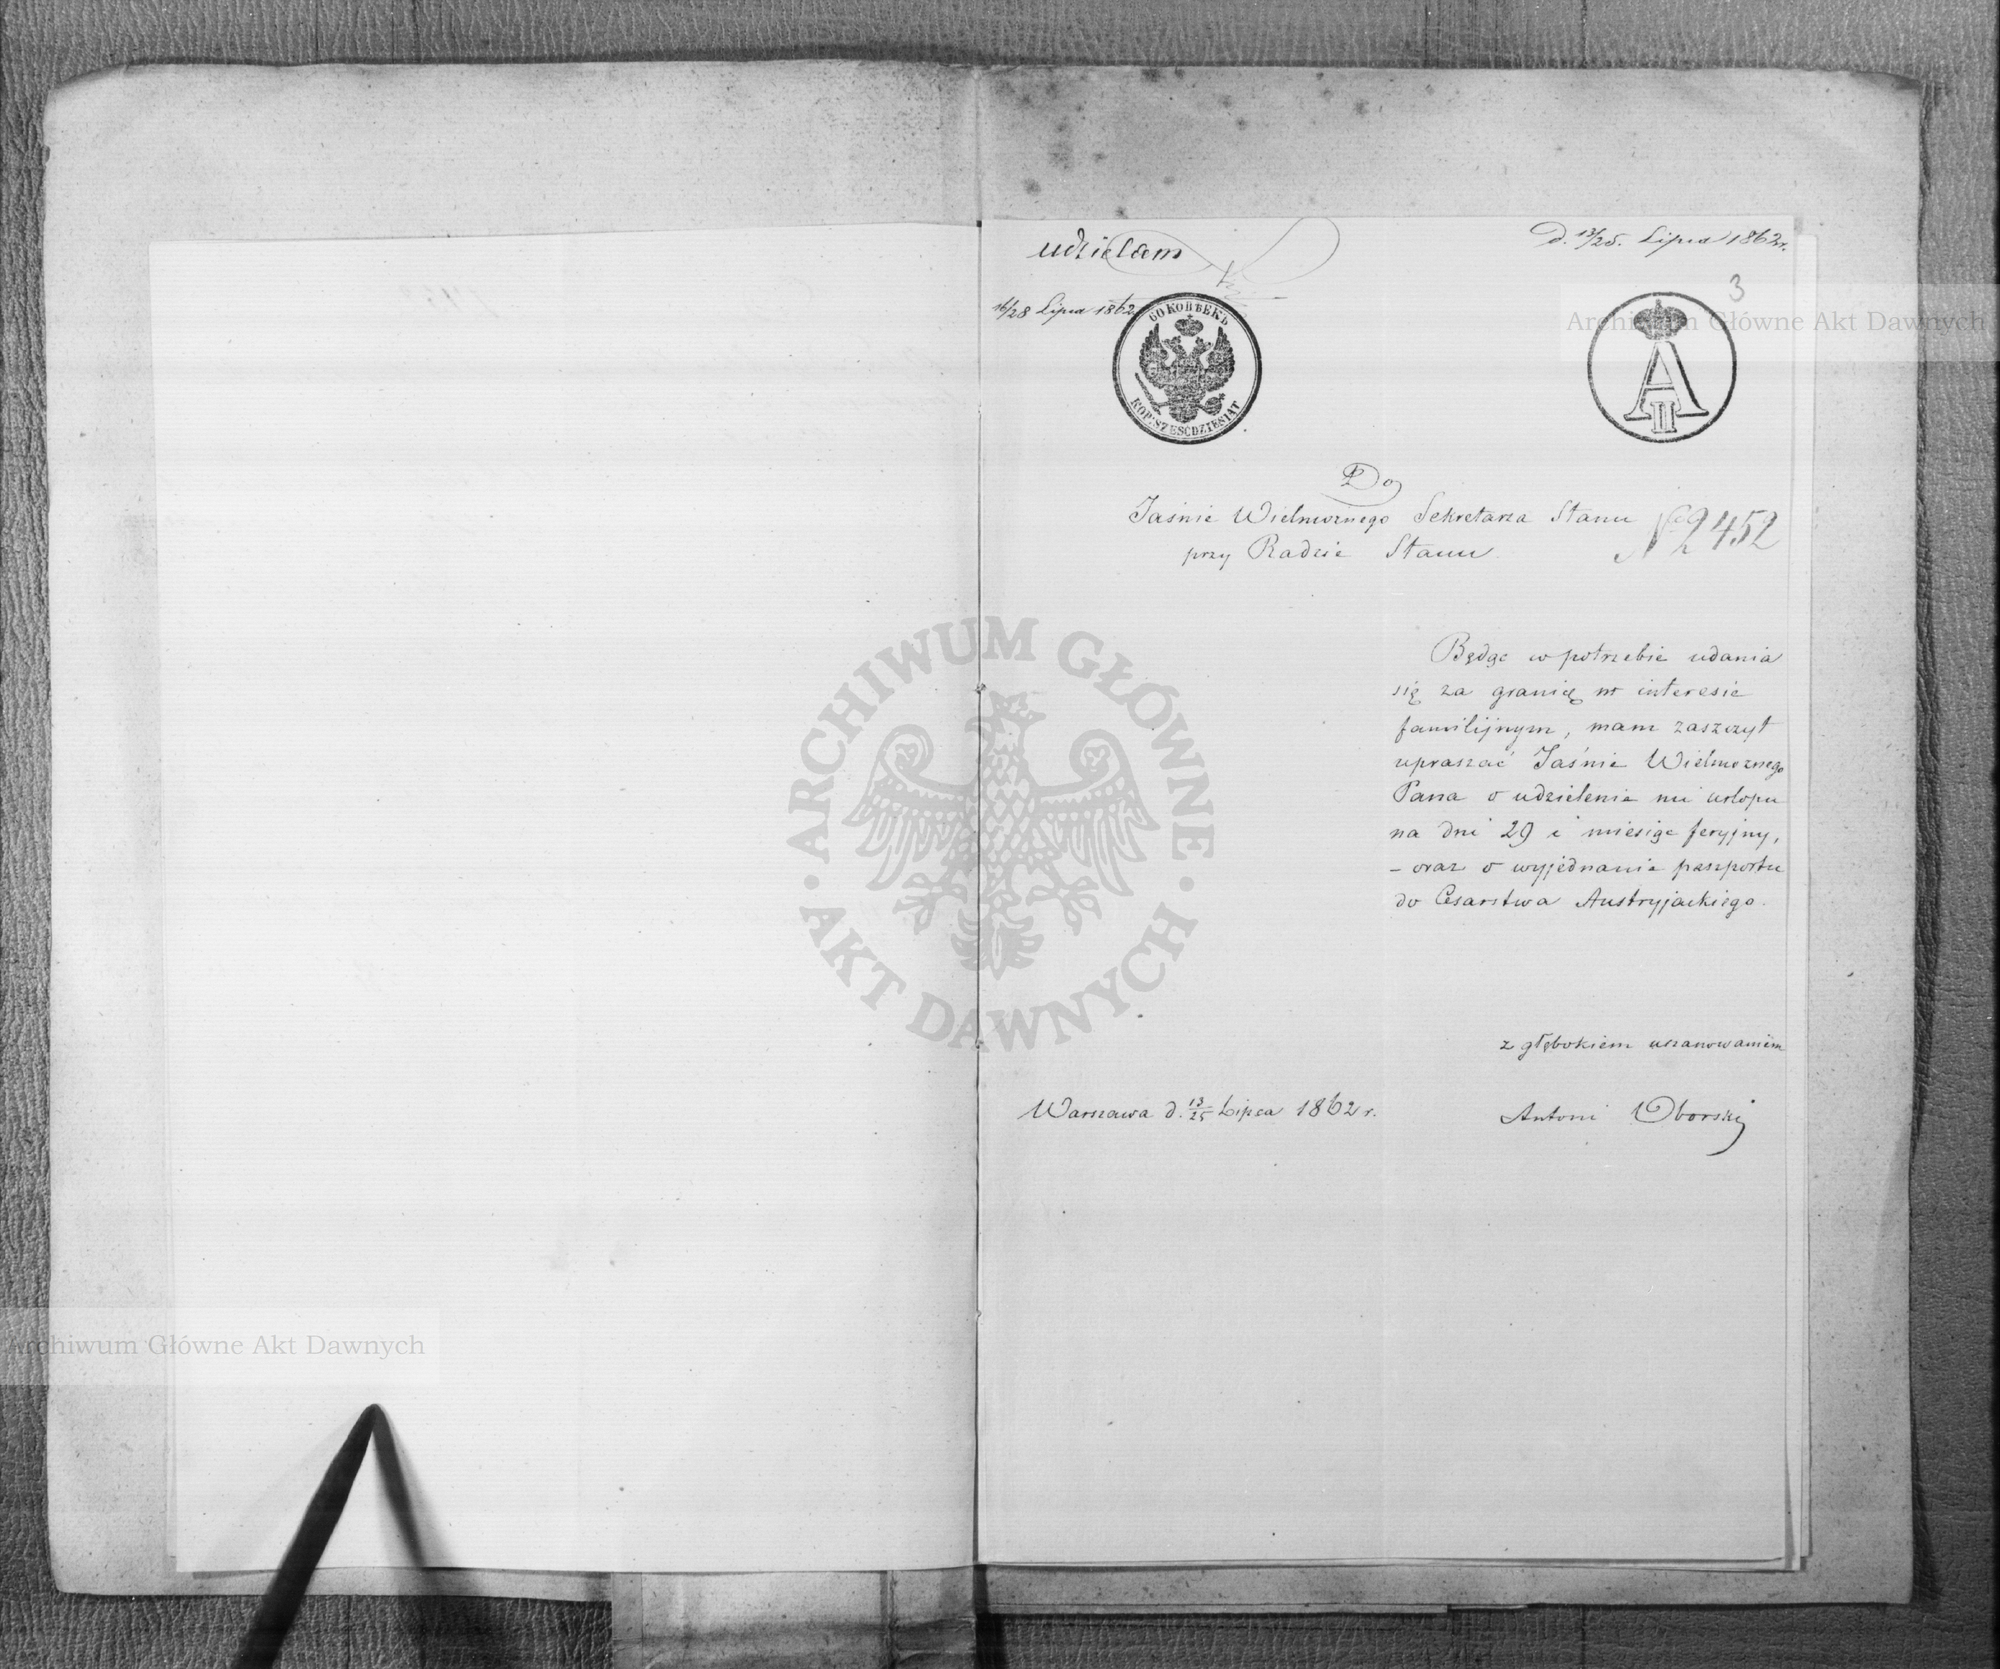 udzielam
D. 13/25. Lipca 1862 r.
16/28 Lipca 1862
3
60 КОПѢЕКЪ
KOP: SZEŚĆDZIESIĄT
A II
Do
Jaśnie Wielmożnego Sekretarza Stanu
przy Radzie Stanu
No 2452
Będąc w potrzebie udania
się za granicę w interesie
familijnym, mam zaszczyt
upraszać Jaśnie Wielmożnego
Pana o udzielenie mi urlopu
na dni 29 i miesiąc feryjny,
– oraz o wyjednanie paszportu
do Cesarstwa Austryjackiego.
z głębokiem uszanowaniem
Warszawa d. 13/25 Lipca 1862 r.
Antoni Oborski
Archiwum Główne Akt Dawnych
ARCHIWUM GŁÓWNE
AKT DAWNYCH
Archiwum Główne Akt Dawnych